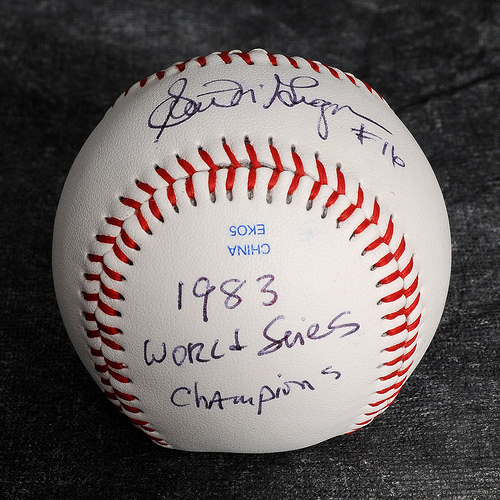 Scott McGregor
#16
CHINA
EKO5
1983
WORLd Series
Champions